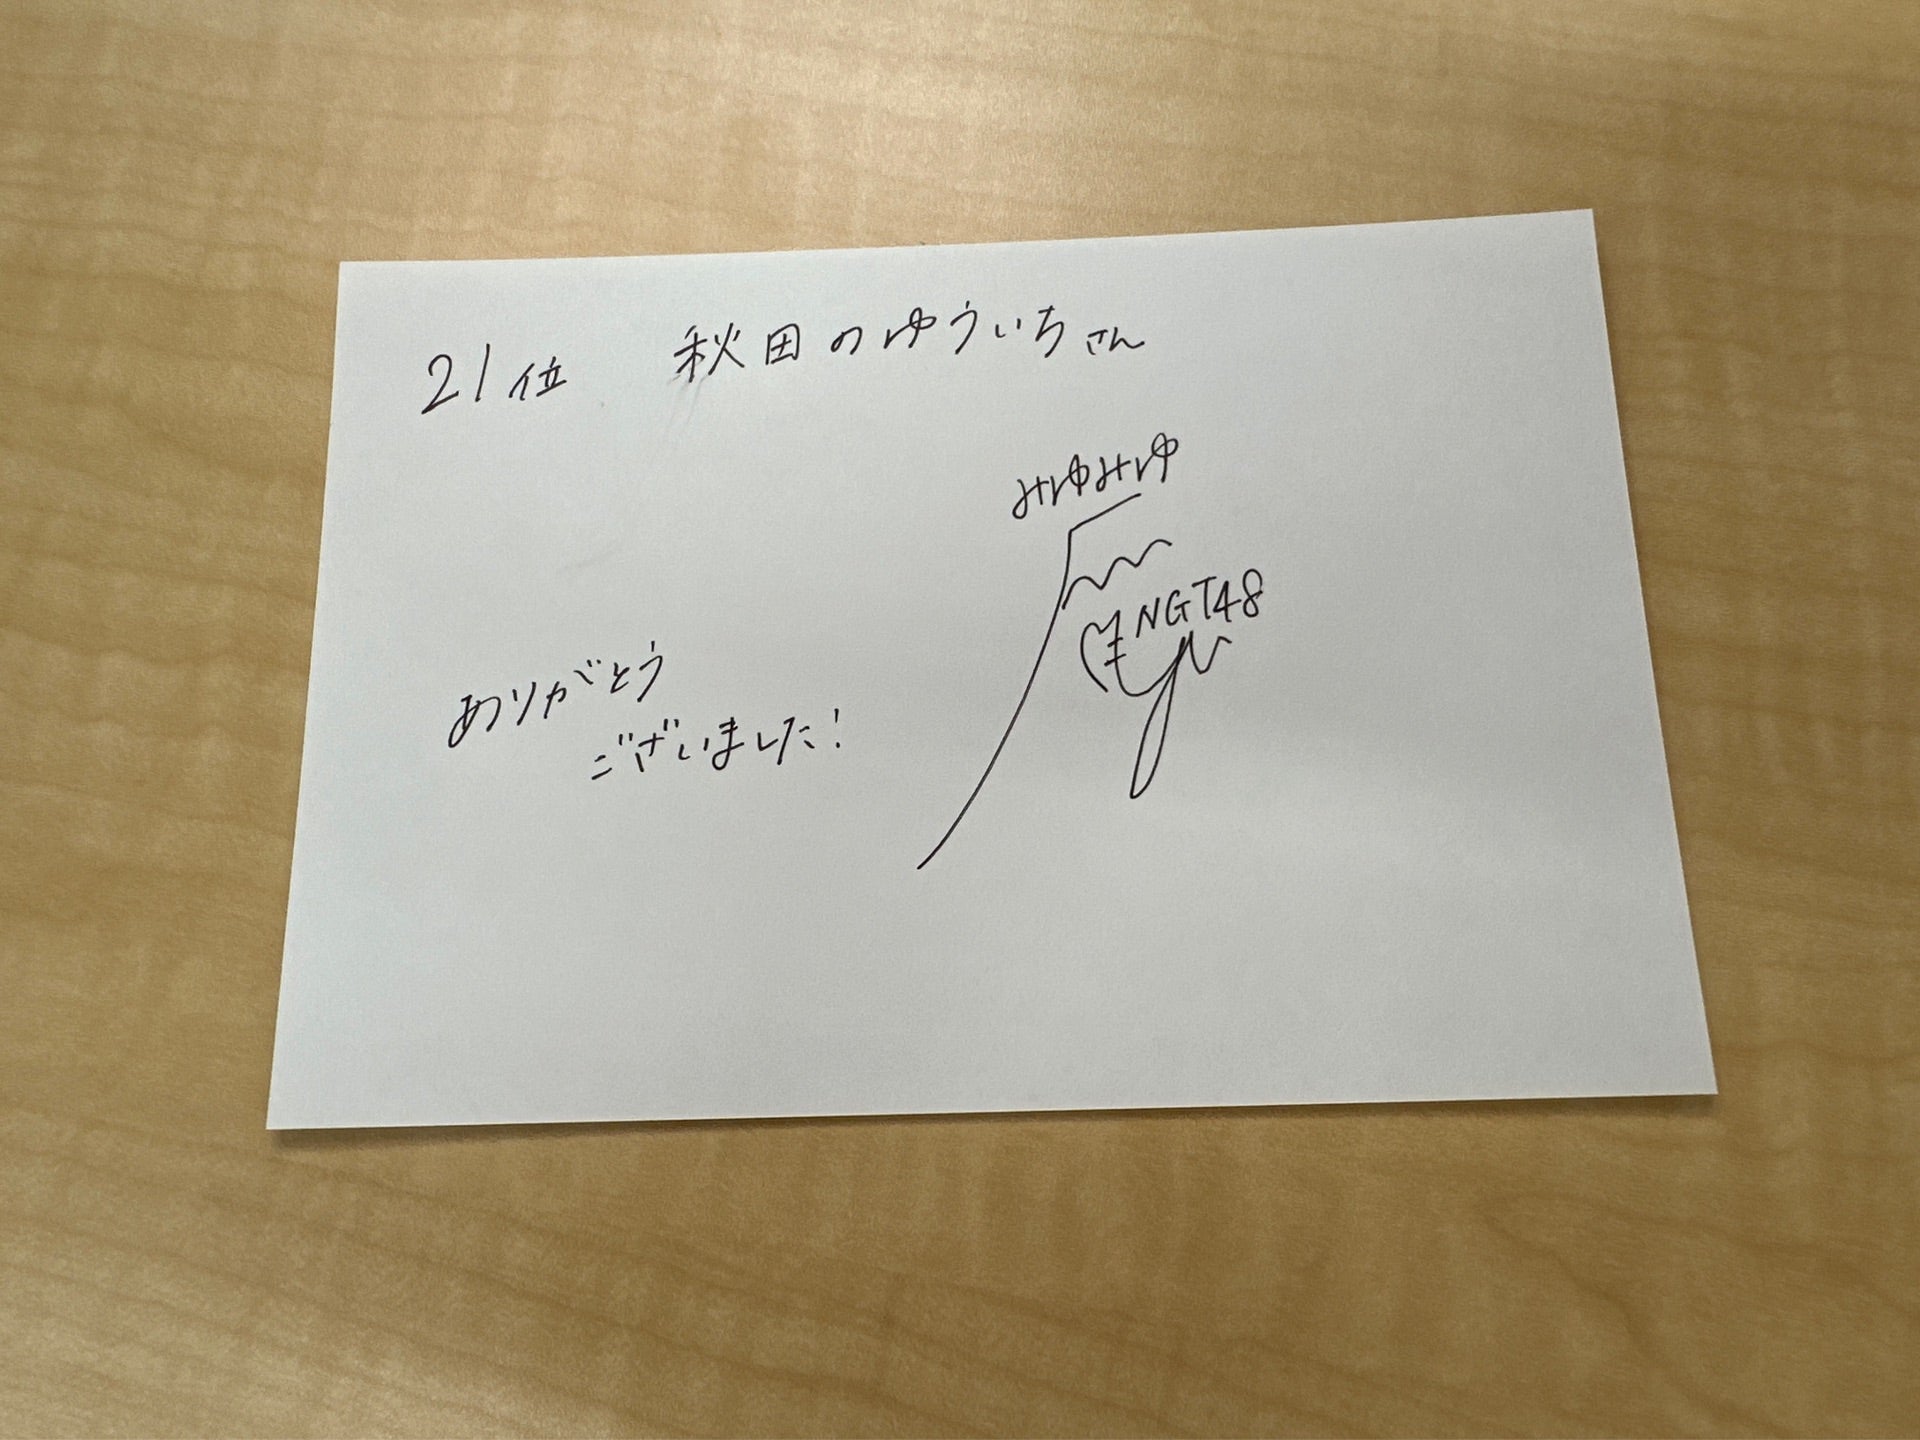 21位 秋田のゆういちさん
みゆみゆ
NGT48
ありがとう
ございました!